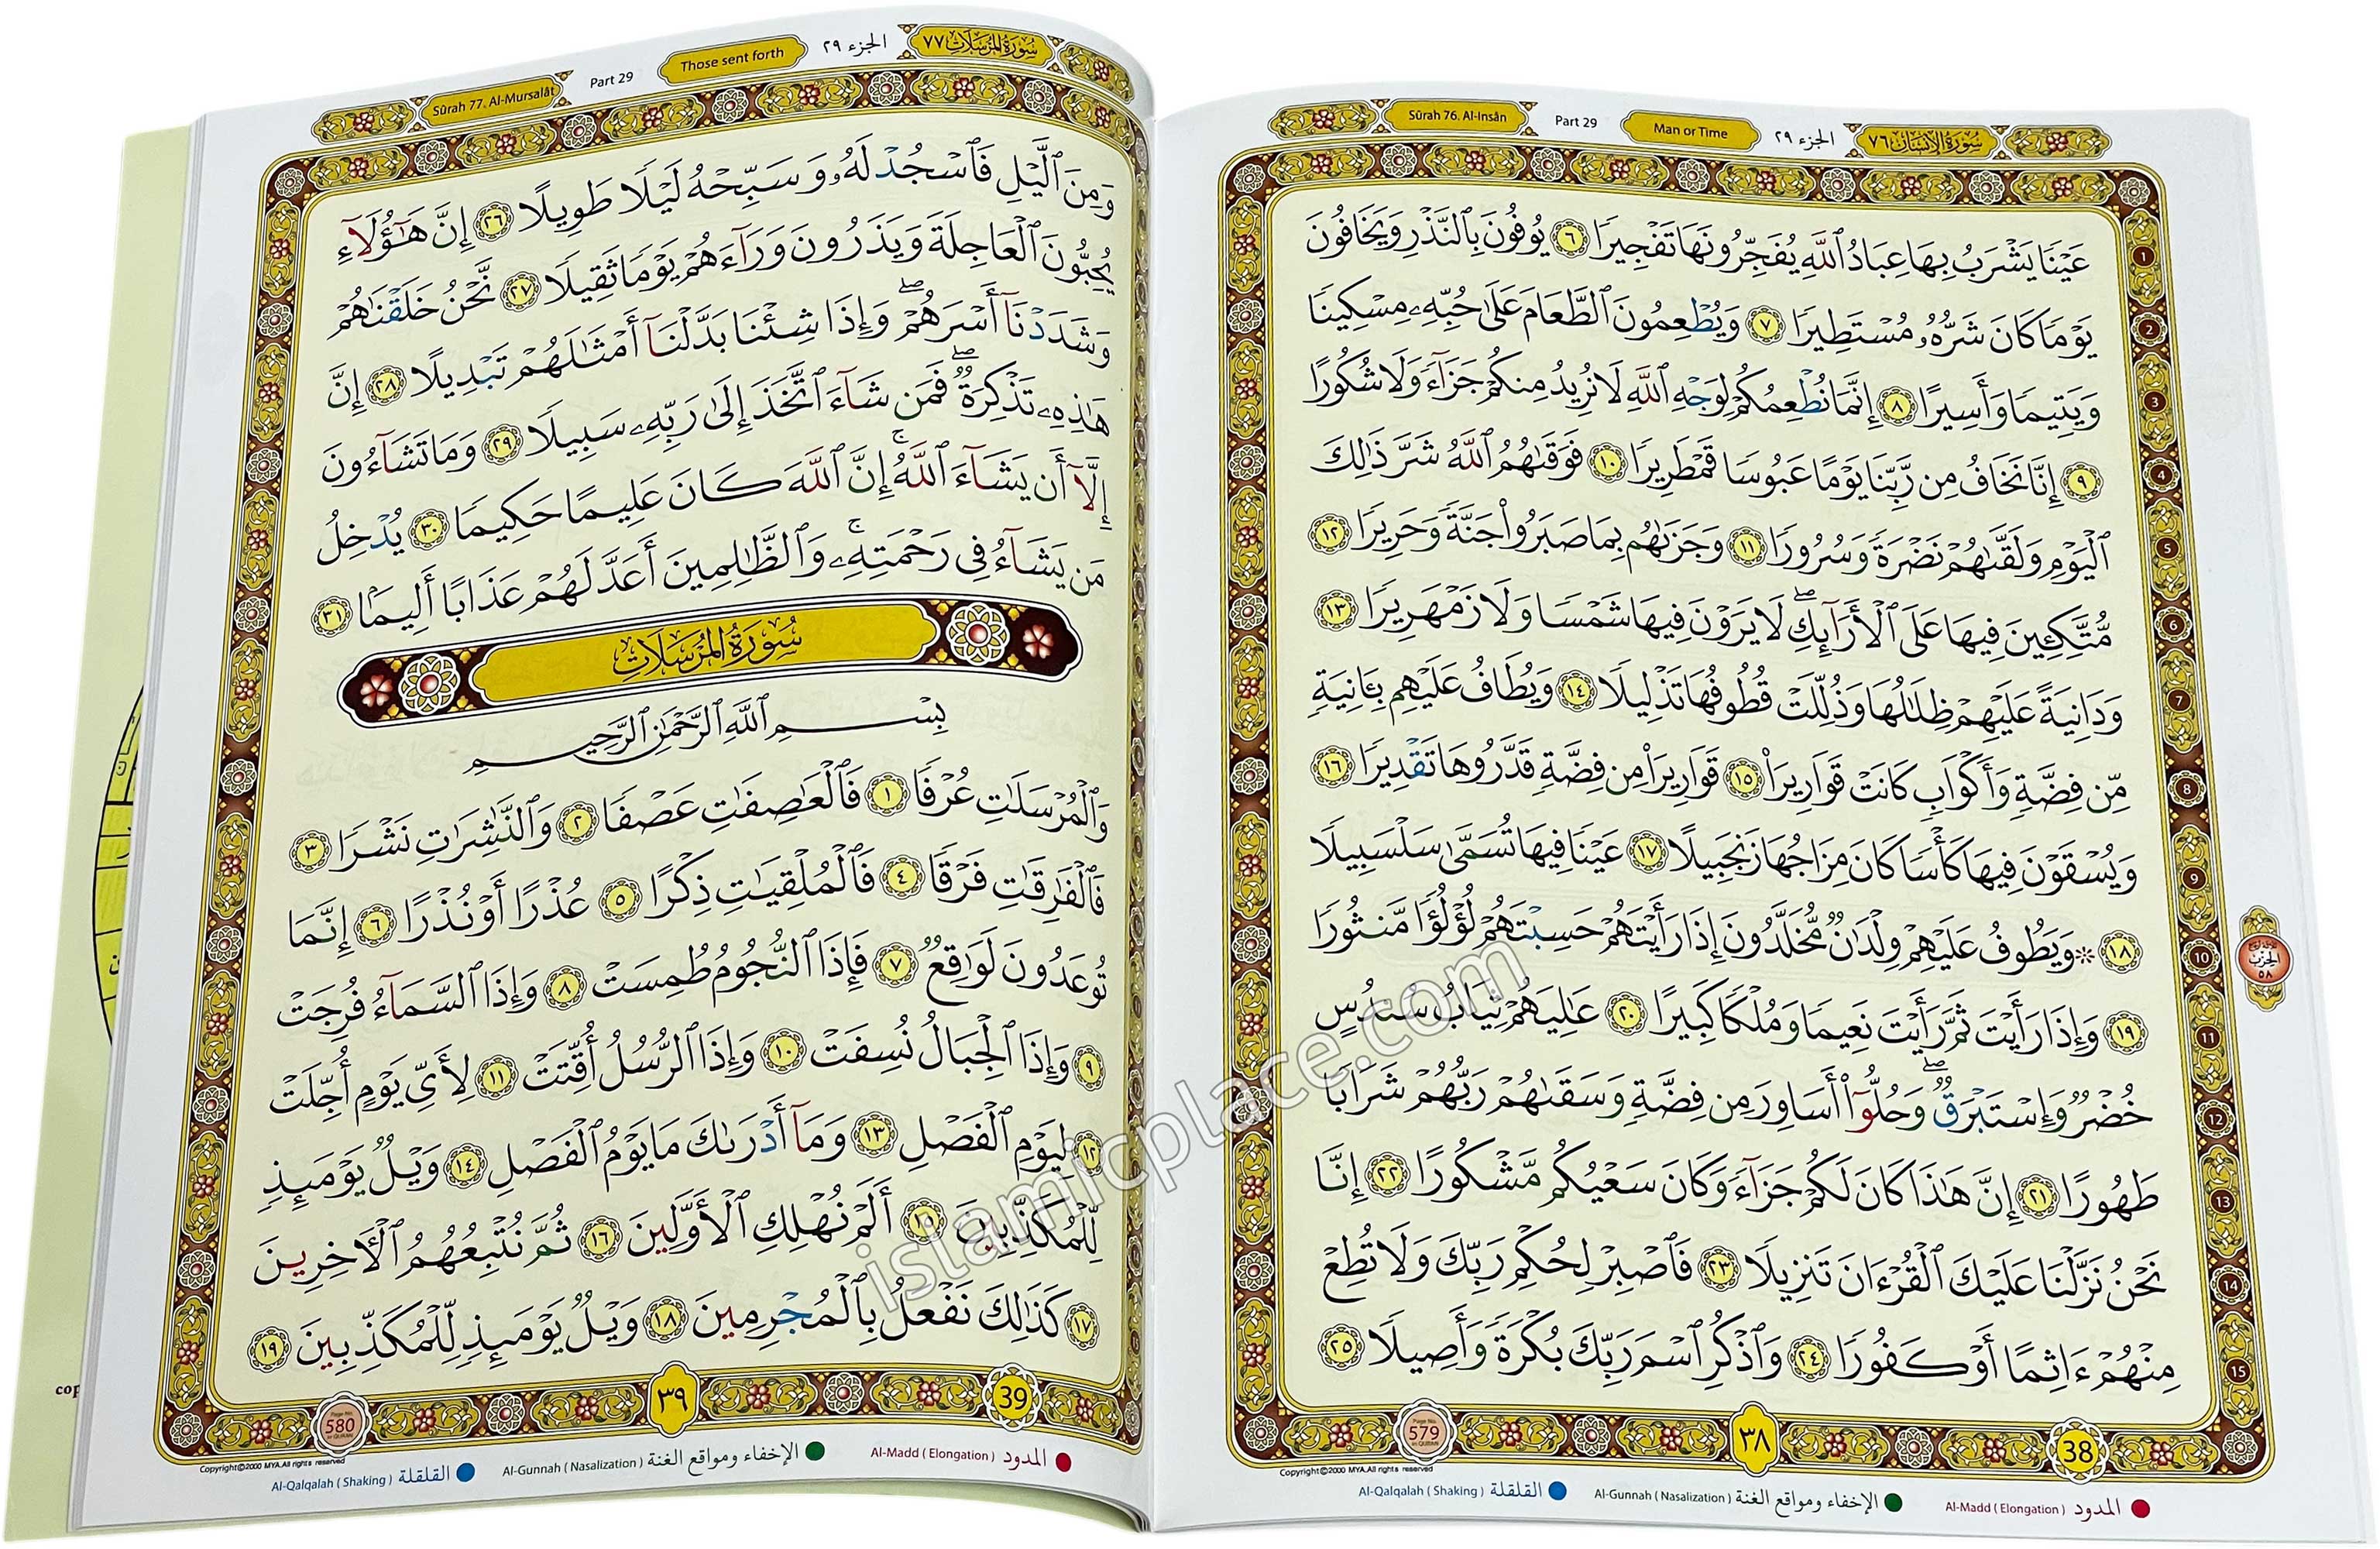 Sûrah 76. Al-Insân
Part 29
Man or Time
الجزء ٢٩
سُورَةُ الإِنسَان ٧٦
عَيْنًا يَشْرَبُ بِهَا عِبَادُ ٱللَّهِ يُفَجِّرُونَهَا تَفْجِيرًا ٦ يُوفُونَ بِٱلنَّذْرِ وَيَخَافُونَ
يَوْمًا كَانَ شَرُّهُۥ مُسْتَطِيرًا ٧ وَيُطْعِمُونَ ٱلطَّعَامَ عَلَىٰ حُبِّهِۦ مِسْكِينًا
وَيَتِيمًا وَأَسِيرًا ٨ إِنَّمَا نُطْعِمُكُمْ لِوَجْهِ ٱللَّهِ لَا نُرِيدُ مِنكُمْ جَزَآءً وَلَا شُكُورًا
٩ إِنَّا نَخَافُ مِن رَّبِّنَا يَوْمًا عَبُوسًا قَمْطَرِيرًا ١٠ فَوَقَىٰهُمُ ٱللَّهُ شَرَّ ذَٰلِكَ
ٱلْيَوْمِ وَلَقَّىٰهُمْ نَضْرَةً وَسُرُورًا ١١ وَجَزَىٰهُم بِمَا صَبَرُوا۟ جَنَّةً وَحَرِيرًا ١٢
مُّتَّكِـِٔينَ فِيهَا عَلَى ٱلْأَرَآئِكِ ۖ لَا يَرَوْنَ فِيهَا شَمْسًا وَلَا زَمْهَرِيرًا ١٣
وَدَانِيَةً عَلَيْهِمْ ظِلَـٰلُهَا وَذُلِّلَتْ قُطُوفُهَا تَذْلِيلًا ١٤ وَيُطَافُ عَلَيْهِم بِـَٔانِيَةٍ
مِّن فِضَّةٍ وَأَكْوَابٍ كَانَتْ قَوَارِيرَا۠ ١٥ قَوَارِيرَا۟ مِن فِضَّةٍ قَدَّرُوهَا تَقْدِيرًا ١٦
وَيُسْقَوْنَ فِيهَا كَأْسًا كَانَ مِزَاجُهَا زَنجَبِيلًا ١٧ عَيْنًا فِيهَا تُسَمَّىٰ سَلْسَبِيلًا
١٨ ۞ وَيَطُوفُ عَلَيْهِمْ وِلْدَٰنٌ مُّخَلَّدُونَ إِذَا رَأَيْتَهُمْ حَسِبْتَهُمْ لُؤْلُؤًا مَّنثُورًا
١٩ وَإِذَا رَأَيْتَ ثَمَّ رَأَيْتَ نَعِيمًا وَمُلْكًا كَبِيرًا ٢٠ عَـٰلِيَهُمْ ثِيَابُ سُندُسٍ
خُضْرٌ وَإِسْتَبْرَقٌ ۖ وَحُلُّوٓا۟ أَسَاوِرَ مِن فِضَّةٍ وَسَقَىٰهُمْ رَبُّهُمْ شَرَابًا
طَهُورًا ٢١ إِنَّ هَـٰذَا كَانَ لَكُمْ جَزَآءً وَكَانَ سَعْيُكُم مَّشْكُورًا ٢٢ إِنَّا
نَحْنُ نَزَّلْنَا عَلَيْكَ ٱلْقُرْءَانَ تَنزِيلًا ٢٣ فَٱصْبِرْ لِحُكْمِ رَبِّكَ وَلَا تُطِعْ
مِنْهُمْ ءَاثِمًا أَوْ كَفُورًا ٢٤ وَٱذْكُرِ ٱسْمَ رَبِّكَ بُكْرَةً وَأَصِيلًا ٢٥
1
2
3
4
5
6
7
8
9
10
11
12
13
14
15
الحزب ٥٨
Page No. 579 in QURAN
٣٨
38
Copyright©2000 MYA.All rights reserved
Al-Qalqalah ( Shaking ) القلقلة
Al-Gunnah ( Nasalization ) الإخفاء ومواقع الغنة
Al-Madd ( Elongation ) المدود
Sûrah 77. Al-Mursalât
Part 29
Those sent forth
الجزء ٢٩
سُورَةُ المُرْسَلَات ٧٧
وَمِنَ ٱلَّيْلِ فَٱسْجُدْ لَهُۥ وَسَبِّحْهُ لَيْلًا طَوِيلًا ٢٦ إِنَّ هَـٰٓؤُلَآءِ
يُحِبُّونَ ٱلْعَاجِلَةَ وَيَذَرُونَ وَرَآءَهُمْ يَوْمًا ثَقِيلًا ٢٧ نَّحْنُ خَلَقْنَـٰهُمْ
وَشَدَدْنَآ أَسْرَهُمْ ۖ وَإِذَا شِئْنَا بَدَّلْنَآ أَمْثَـٰلَهُمْ تَبْدِيلًا ٢٨ إِنَّ
هَـٰذِهِۦ تَذْكِرَةٌ ۖ فَمَن شَآءَ ٱتَّخَذَ إِلَىٰ رَبِّهِۦ سَبِيلًا ٢٩ وَمَا تَشَآءُونَ
إِلَّآ أَن يَشَآءَ ٱللَّهُ ۚ إِنَّ ٱللَّهَ كَانَ عَلِيمًا حَكِيمًا ٣٠ يُدْخِلُ
مَن يَشَآءُ فِى رَحْمَتِهِۦ ۚ وَٱلظَّـٰلِمِينَ أَعَدَّ لَهُمْ عَذَابًا أَلِيمًۢا ٣١
سُورَةُ المُرْسَلَات
بِسْمِ ٱللَّهِ ٱلرَّحْمَـٰنِ ٱلرَّحِيمِ
وَٱلْمُرْسَلَـٰتِ عُرْفًا ١ فَٱلْعَـٰصِفَـٰتِ عَصْفًا ٢ وَٱلنَّـٰشِرَٰتِ نَشْرًا ٣
فَٱلْفَـٰرِقَـٰتِ فَرْقًا ٤ فَٱلْمُلْقِيَـٰتِ ذِكْرًا ٥ عُذْرًا أَوْ نُذْرًا ٦ إِنَّمَا
تُوعَدُونَ لَوَٰقِعٌ ٧ فَإِذَا ٱلنُّجُومُ طُمِسَتْ ٨ وَإِذَا ٱلسَّمَآءُ فُرِجَتْ
٩ وَإِذَا ٱلْجِبَالُ نُسِفَتْ ١٠ وَإِذَا ٱلرُّسُلُ أُقِّتَتْ ١١ لِأَىِّ يَوْمٍ أُجِّلَتْ
١٢ لِيَوْمِ ٱلْفَصْلِ ١٣ وَمَآ أَدْرَىٰكَ مَا يَوْمُ ٱلْفَصْلِ ١٤ وَيْلٌ يَوْمَئِذٍ
لِّلْمُكَذِّبِينَ ١٥ أَلَمْ نُهْلِكِ ٱلْأَوَّلِينَ ١٦ ثُمَّ نُتْبِعُهُمُ ٱلْـَٔاخِرِينَ
١٧ كَذَٰلِكَ نَفْعَلُ بِٱلْمُجْرِمِينَ ١٨ وَيْلٌ يَوْمَئِذٍ لِّلْمُكَذِّبِينَ ١٩
Page No. 580 in QURAN
٣٩
39
Copyright©2000 MYA.All rights reserved
Al-Qalqalah ( Shaking ) القلقلة
Al-Gunnah ( Nasalization ) الإخفاء ومواقع الغنة
Al-Madd ( Elongation ) المدود
islamicplace.com